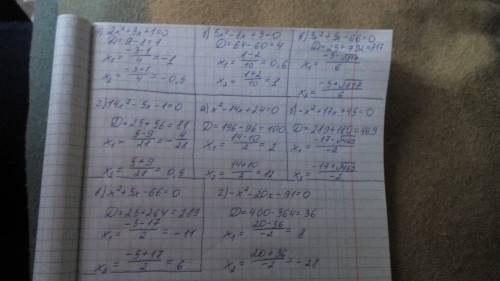 1) 2x²+3x+1=0
D=9-8=1
x₁ = (-3-1)/4 = -1
x₂ = (-3+1)/4 = -0,5
5x²-8x+3=0
D=64-60=4
x₁ = = 0,6
x₂ = = 1
3x²+5x-66=0
D=25+792=817
x₁ = (-5-√817)/6
x₂ = (-5+√817)/6
2) 14x²-5x-1=0
D=25+56=81
x₁ = (5-9)/28 = -4/28
x₂ = (5+9)/28 = 0,5
x²-14x+24=0
D=196-96=100
x₁ = (14-10)/2 = 2
x₂ = (14+10)/2 = 12
-x²+17x+45=0
D=289+180=469
x₁ = (-17-√469)/-2
x₂ = (-17+√469)/-2
x²+5x-66=0
D=25+264=289
x₁ = (-5-17)/2 = -11
x₂ = (-5+17)/2 = 6
2) -x²-20x-91=0
D=400-364=36
x₁ = (20-36)/-2 = 8
x₂ = (20+36)/-2 = -28